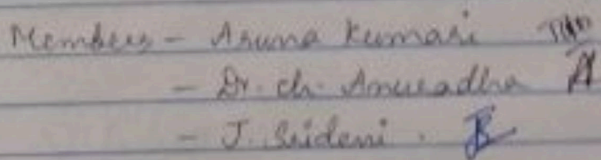 Members - Aruna Kumari
- Dr. ch. Anuradha
- J. Sridevi.